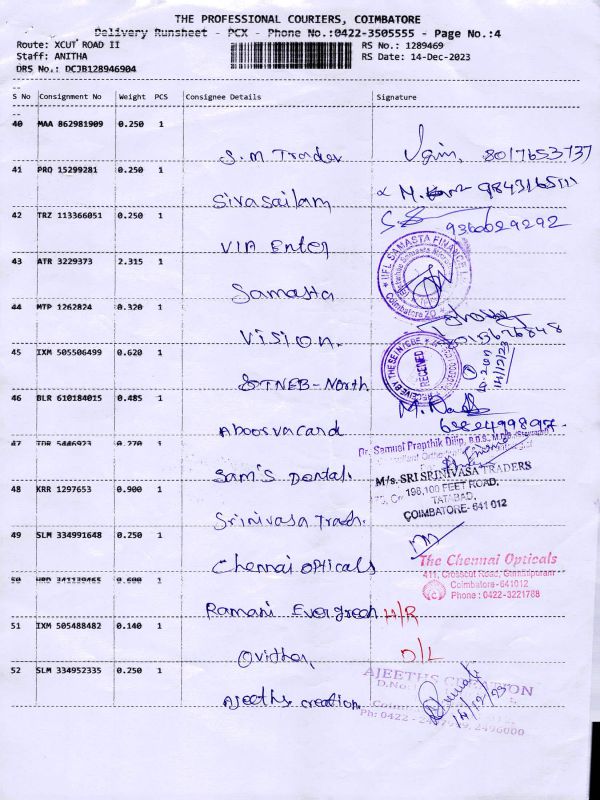 THE PROFESSIONAL COURIERS, COIMBATORE
Delivery Runsheet - PCX - Phone No.:0422-3505555 - Page No.:4
Route: XCUT ROAD II RS No.: 1289469
Staff: ANITHA RS Date: 14-Dec-2023
DRS No.: DCJB128946904
S No Consignment No Weight PCS Consignee Details Signature
40 MAA 862981909 0.250 1
S.M Trader 8017653737
41 PRQ 15299281 0.250 1
Sivasailam
42 TRZ 113366051 0.250 1 9360029292
VIA Enter
43 ATR 3229373 2.315 1
UFL SAMASTA FINANCE L
Samasta
Coimbatore 20
44 MTP 1262824 0.320 1
Vision.
45 IXM 505506499 0.620 1
RECEIVED
14/12/23
STNEB-North
46 BLR 610184015 0.485 1
Aboorvacard
47 TDR 5446923 0.270 1
Dr. Samuel Prapthik Dilip, B.D.S.
Sam's Dental.
M/s. SRI SRINIVASA TRADERS
48 KRR 1297653 0.900 1
198,100 FEET ROAD,
TATABAD,
COIMBATORE- 641 012
Srinivasa Trade.
49 SLM 334991648 0.250 1
Chennai opticals
The Chennai Opticals
411, Crosscut Road, Gandhipuram
Coimbatore-641012
Phone : 0422-3221788
50 HRD 341139465 0.600 1
Ramani Evergreen H/R
51 IXM 505488482 0.140 1
D/L
52 SLM 334952335 0.250 1
AJEETHS CREATION
Ajeeths creation.
14/12/23
Ph: 0422 - 2496000